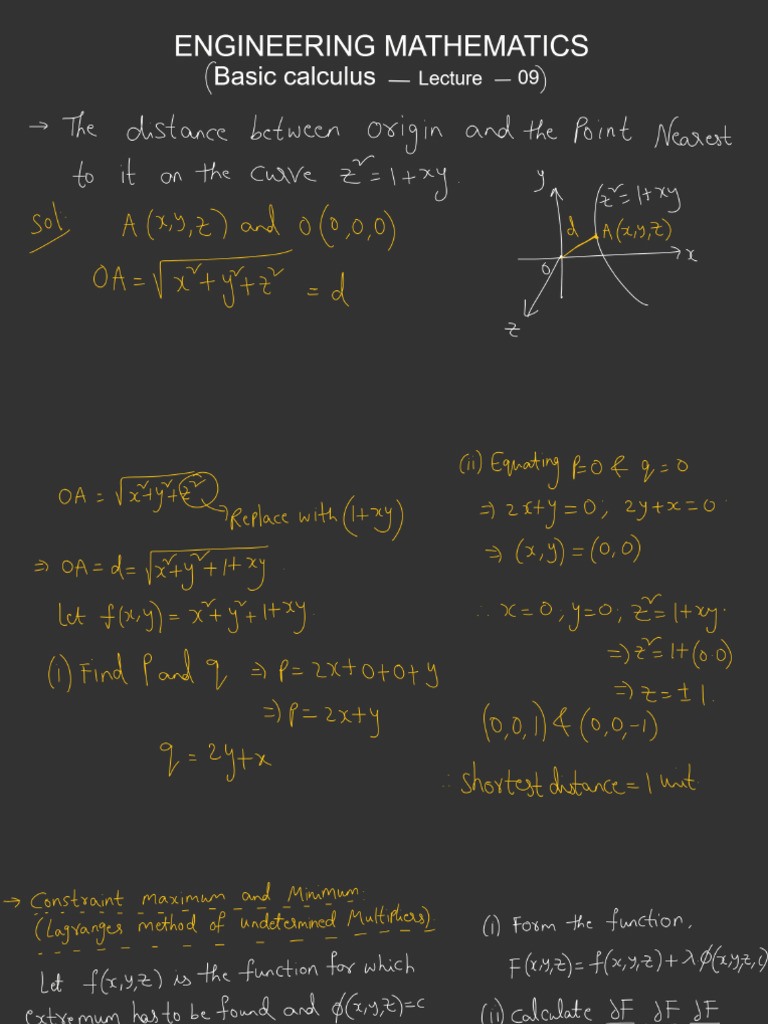 ENGINEERING MATHEMATICS
(Basic calculus — Lecture — 09)
→ The distance between origin and the Point Nearest
to it on the curve z² = 1+xy.
Sol: A(x,y,z) and O(0,0,0)
OA = √x²+y²+z² = d
y
z² = 1+xy
d
A(x,y,z)
O
x
z
OA = √x²+y²+z²
→ Replace with (1+xy)
⇒ OA = d = √x²+y²+1+xy.
Let f(x,y) = x²+y²+1+xy.
(i) Find P and q ⇒ P = 2x+0+0+y
⇒ P = 2x+y
q = 2y+x
(ii) Equating P=0 & q=0
⇒ 2x+y=0; 2y+x=0.
⇒ (x,y) = (0,0)
∴ x=0; y=0; z²=1+xy.
⇒ z²=1+(0.0)
⇒ z = ±1.
(0,0,1) & (0,0,-1)
∴ Shortest distance = 1 unit.
→ Constraint maximum and Minimum:
(Lagranges method of undetermined Multipliers).
Let f(x,y,z) is the function for which
extremum has to be found and ϕ(x,y,z)=c
(i) Form the function,
F(x,y,z) = f(x,y,z) + λϕ(x,y,z,c)
(ii) Calculate ∂F ∂F ∂F